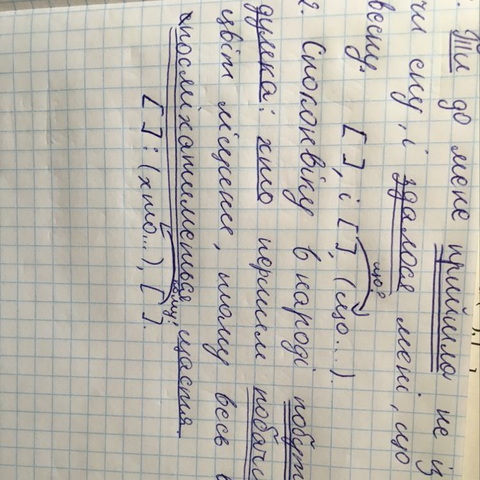 Ти до мене прийшла не із
чи сну, і здалося мені, що
весну.
що?
[ ], і [ ], (що...).
2. Споконвіку в народі побут
думка: хто першим побачи
цвіт ліщини, тому весь
посміхатиметься щастя.
кому?
[ ]: (хто...), [ ].